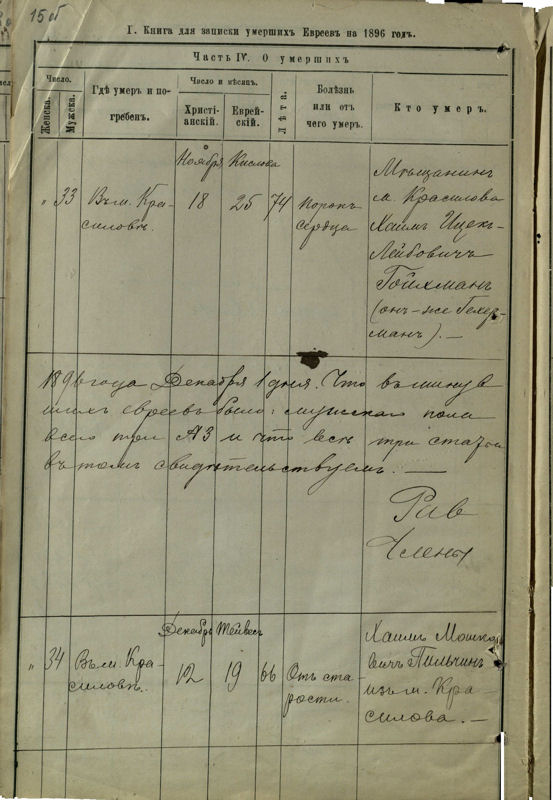 15об
I. Книга для записки умершихъ Евреевъ на 1896 годъ.
Часть IV. О умершихъ
Число.
Женска.
Мужска.
Гдѣ умеръ и по-
гребенъ.
Число и мѣсяцъ.
Христі-
анскій.
Еврей-
скій.
Лѣта.
Болѣзнь
или отъ
чего умеръ.
Кто умеръ.
Ноября Кислова
" 33 Въ м. Кра-
силовѣ.
18 25 74
Порокъ
сердца
Мѣщанинъ
м. Красилова
Хаимъ Ицек-
Лейбовичъ
Гойхман
(он-же Гехер-
манъ). —
1896 года Декабря 1 дня. Что въ минув
шихъ евреевъ было: мужскаго пола
всего три А3 и что всѣ три статьи
въ томъ свидѣтельствуемъ. —
Рав
Члены
Декабрь Тейвес
" 34 Въ м. Кра-
силовѣ.
12 19 66
Отъ ста
рости.
Хаимъ Мошко
вичъ Пильчин
изъ м. Кра-
силова. —